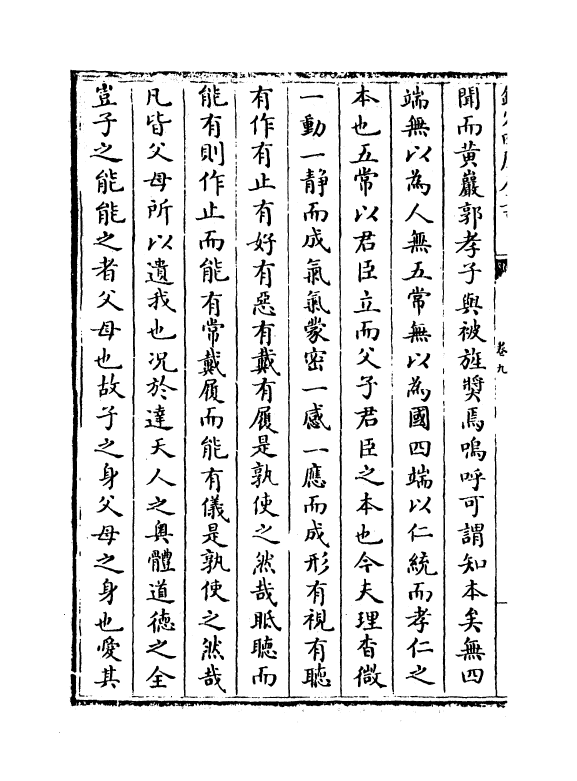 卷九
聞而黄巖郭孝子與被旌奬焉嗚呼可謂知本矣無四
端無以為人無五常無以為國四端以仁統而孝仁之
本也五常以君臣立而父子君臣之本也今夫理杳微
一動一静而成氣氣蒙密一感一應而成形有視有聽
有作有止有好有惡有戴有履是孰使之然哉眡聽而
能有則作止而能有常戴履而能有儀是孰使之然哉
凡皆父母所以遺我也况於達天人之奥體道德之全
豈子之能能之者父母也故子之身父母之身也愛其